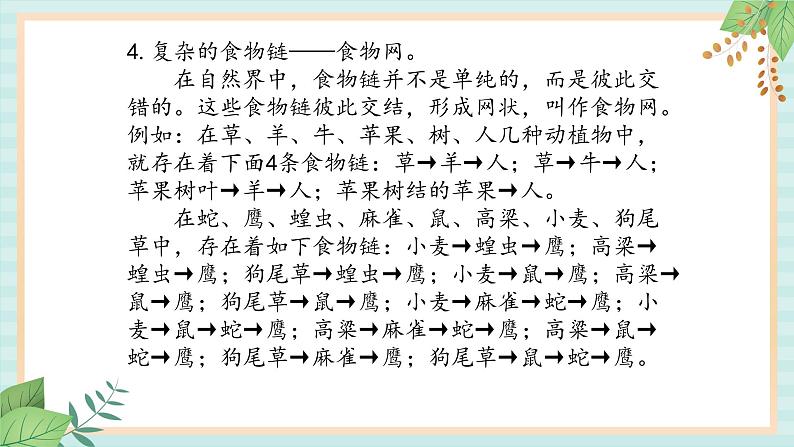 4. 复杂的食物链——食物网。
在自然界中，食物链并不是单纯的，而是彼此交
错的。这些食物链彼此交结，形成网状，叫作食物网。
例如：在草、羊、牛、苹果、树、人几种动植物中，
就存在着下面4条食物链：草→羊→人；草→牛→人；
苹果树叶→羊→人；苹果树结的苹果→人。
在蛇、鹰、蝗虫、麻雀、鼠、高粱、小麦、狗尾
草中，存在着如下食物链：小麦→蝗虫→鹰；高粱→
蝗虫→鹰；狗尾草→蝗虫→鹰；小麦→鼠→鹰；高粱→
鼠→鹰；狗尾草→鼠→鹰；小麦→麻雀→蛇→鹰；小
麦→鼠→蛇→鹰；高粱→麻雀→蛇→鹰；高粱→鼠→
蛇→鹰；狗尾草→麻雀→鹰；狗尾草→鼠→蛇→鹰。